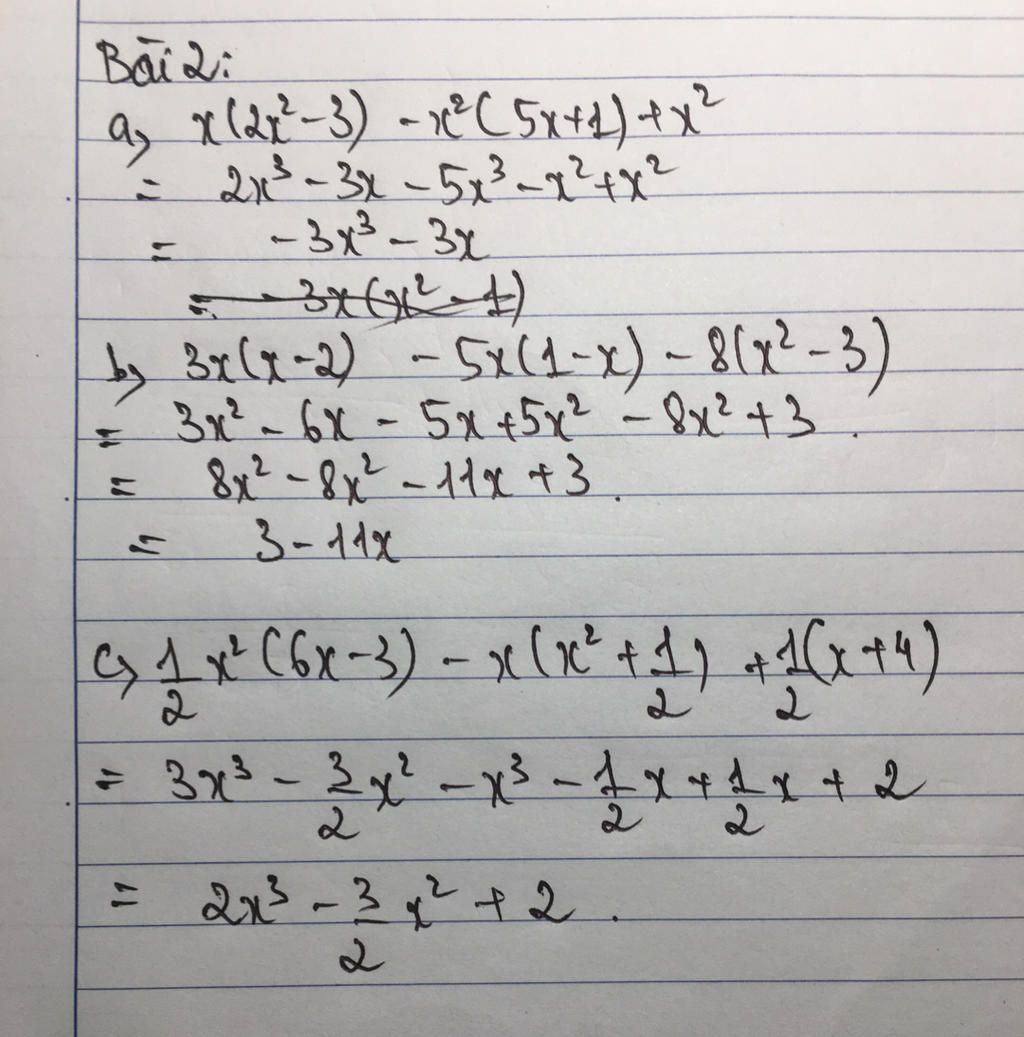 Bài 2:
a, x(2x² - 3) - x²(5x+1) + x²
= 2x³ - 3x - 5x³ - x² + x²
= -3x³ - 3x
= -3x(x² - 1)
b, 3x(x-2) - 5x(1-x) - 8(x² - 3)
= 3x² - 6x - 5x + 5x² - 8x² + 3.
= 8x² - 8x² - 11x + 3.
= 3 - 11x
c, 1/2 x²(6x-3) - x(x² + 1/2) + 1/2(x+4)
= 3x³ - 3/2 x² - x³ - 1/2 x + 1/2 x + 2
= 2x³ - 3/2 x² + 2.